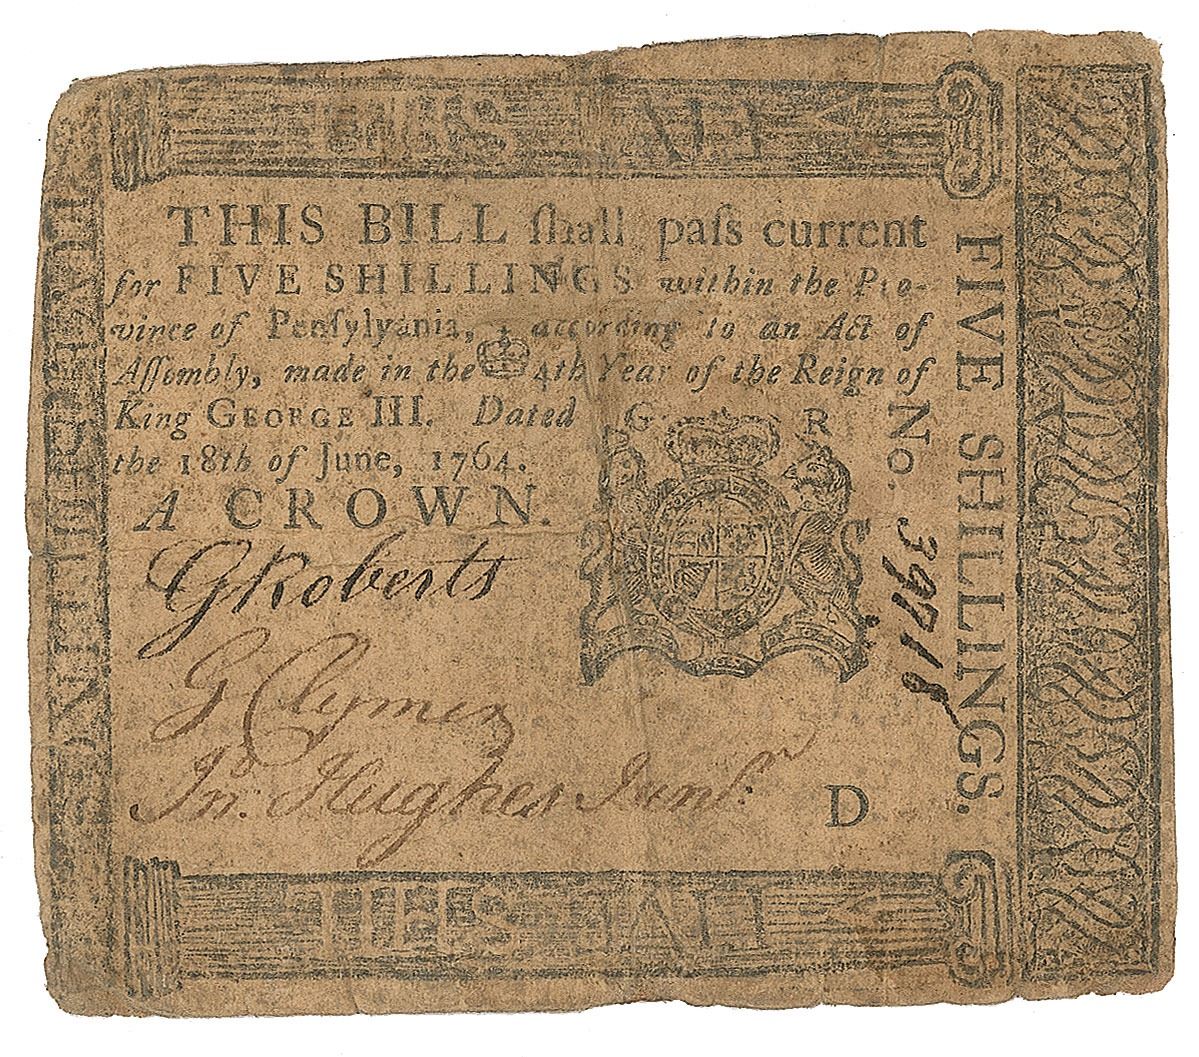 THIS BILL ſhall paſs current
for FIVE SHILLINGS within the Pro-
vince of Penſylvania, according to an Act of
Aſſembly, made in the 4th Year of the Reign of
King GEORGE III. Dated
the 18th of June, 1764.
A CROWN.
G R
GRoberts
G Clymer
Jno. Hughes Junr.
D
No. 39718
FIVE SHILLINGS.